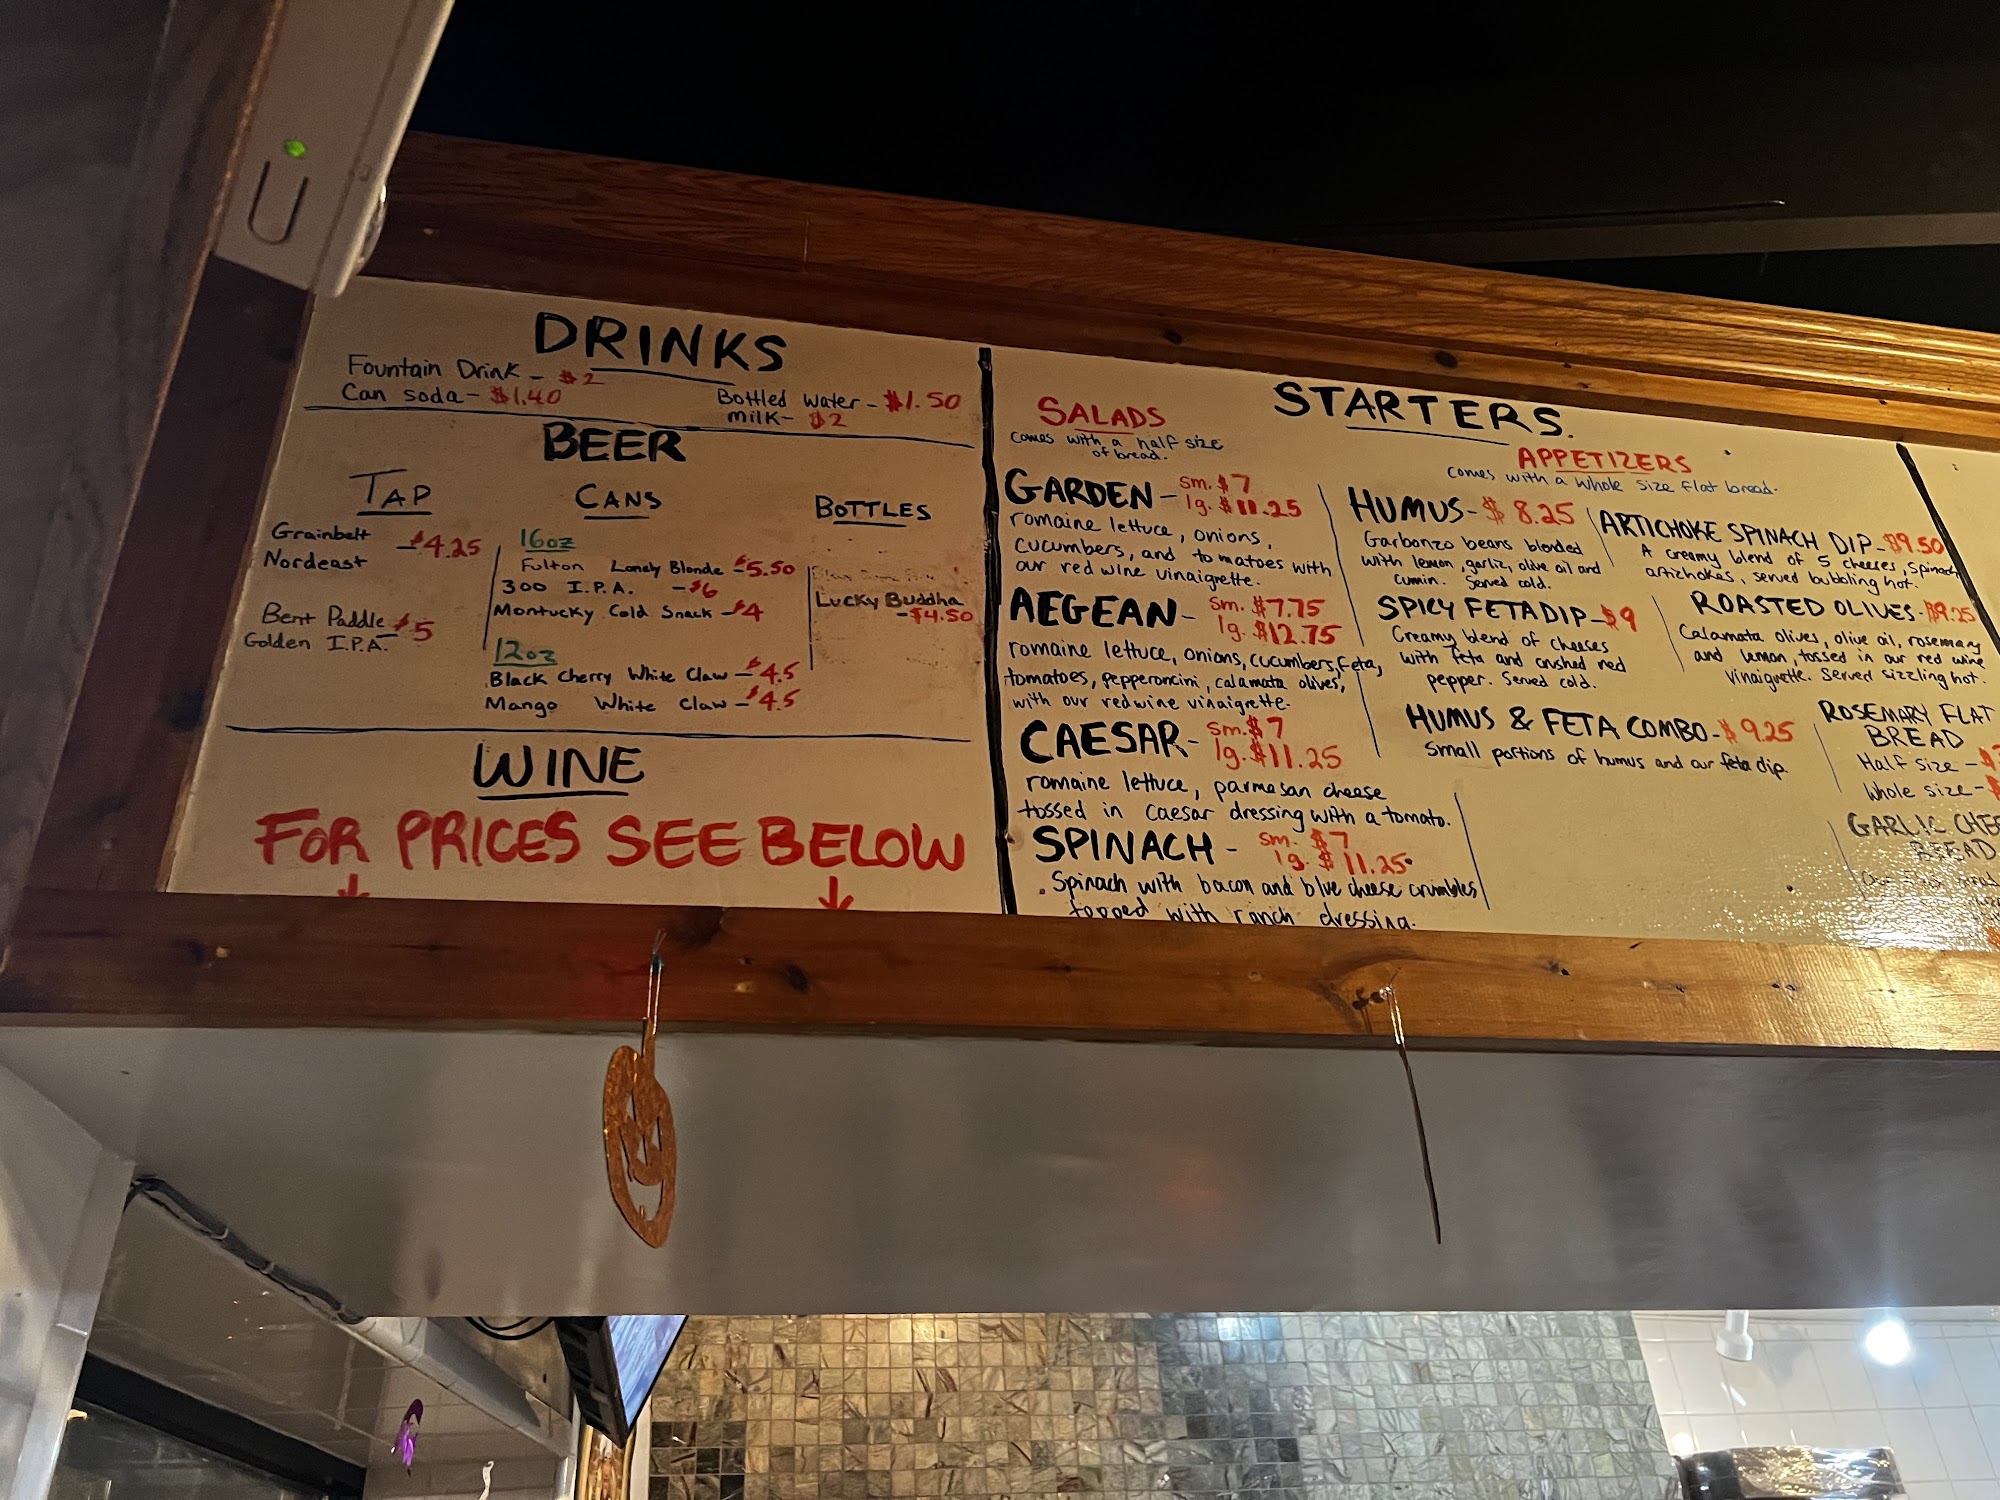 DRINKS
Fountain Drink - $2
Can soda - $1.40
Bottled Water - $1.50
milk - $2
BEER
TAP
Grainbelt
Nordeast
- $4.25
Bent Paddle - $5
Golden I.P.A.
CANS
16oz
Fulton Lonely Blonde - $5.50
300 I.P.A. - $6
Montucky Cold Snack - $4
12oz
Black Cherry White Claw - $4.5
Mango White Claw - $4.5
BOTTLES
Lucky Buddha
- $4.50
WINE
FOR PRICES SEE BELOW
STARTERS
SALADS
comes with a half size
of bread.
GARDEN - sm. $7
lg. $11.25
romaine lettuce, onions,
cucumbers, and tomatoes with
our red wine vinaigrette.
AEGEAN - sm. $7.75
lg. $12.75
romaine lettuce, onions, cucumbers, feta,
tomatoes, pepperoncini, calamata olives,
with our red wine vinaigrette.
CAESAR - sm. $7
lg. $11.25
romaine lettuce, parmesan cheese
tossed in caesar dressing with a tomato.
SPINACH - sm. $7
lg. $11.25
Spinach with bacon and blue cheese crumbles
topped with ranch dressing.
APPETIZERS
comes with a whole size flat bread.
HUMUS - $8.25
Garbonzo beans blended
with lemon, garlic, olive oil and
cumin. Served cold.
SPICY FETA DIP - $9
Creamy blend of cheeses
with feta and crushed red
pepper. Served cold.
HUMUS & FETA COMBO - $9.25
Small portions of humus and our feta dip.
ARTICHOKE SPINACH DIP - $9.50
A creamy blend of 5 cheeses, spinach
artichokes, served bubbling hot.
ROASTED OLIVES - $9.25
Calamata olives, olive oil, rosemary
and lemon, tossed in our red wine
vinaigrette. Served sizzling hot.
ROSEMARY FLAT
BREAD
Half size - $
Whole size - $
GARLIC CHE
BREAD